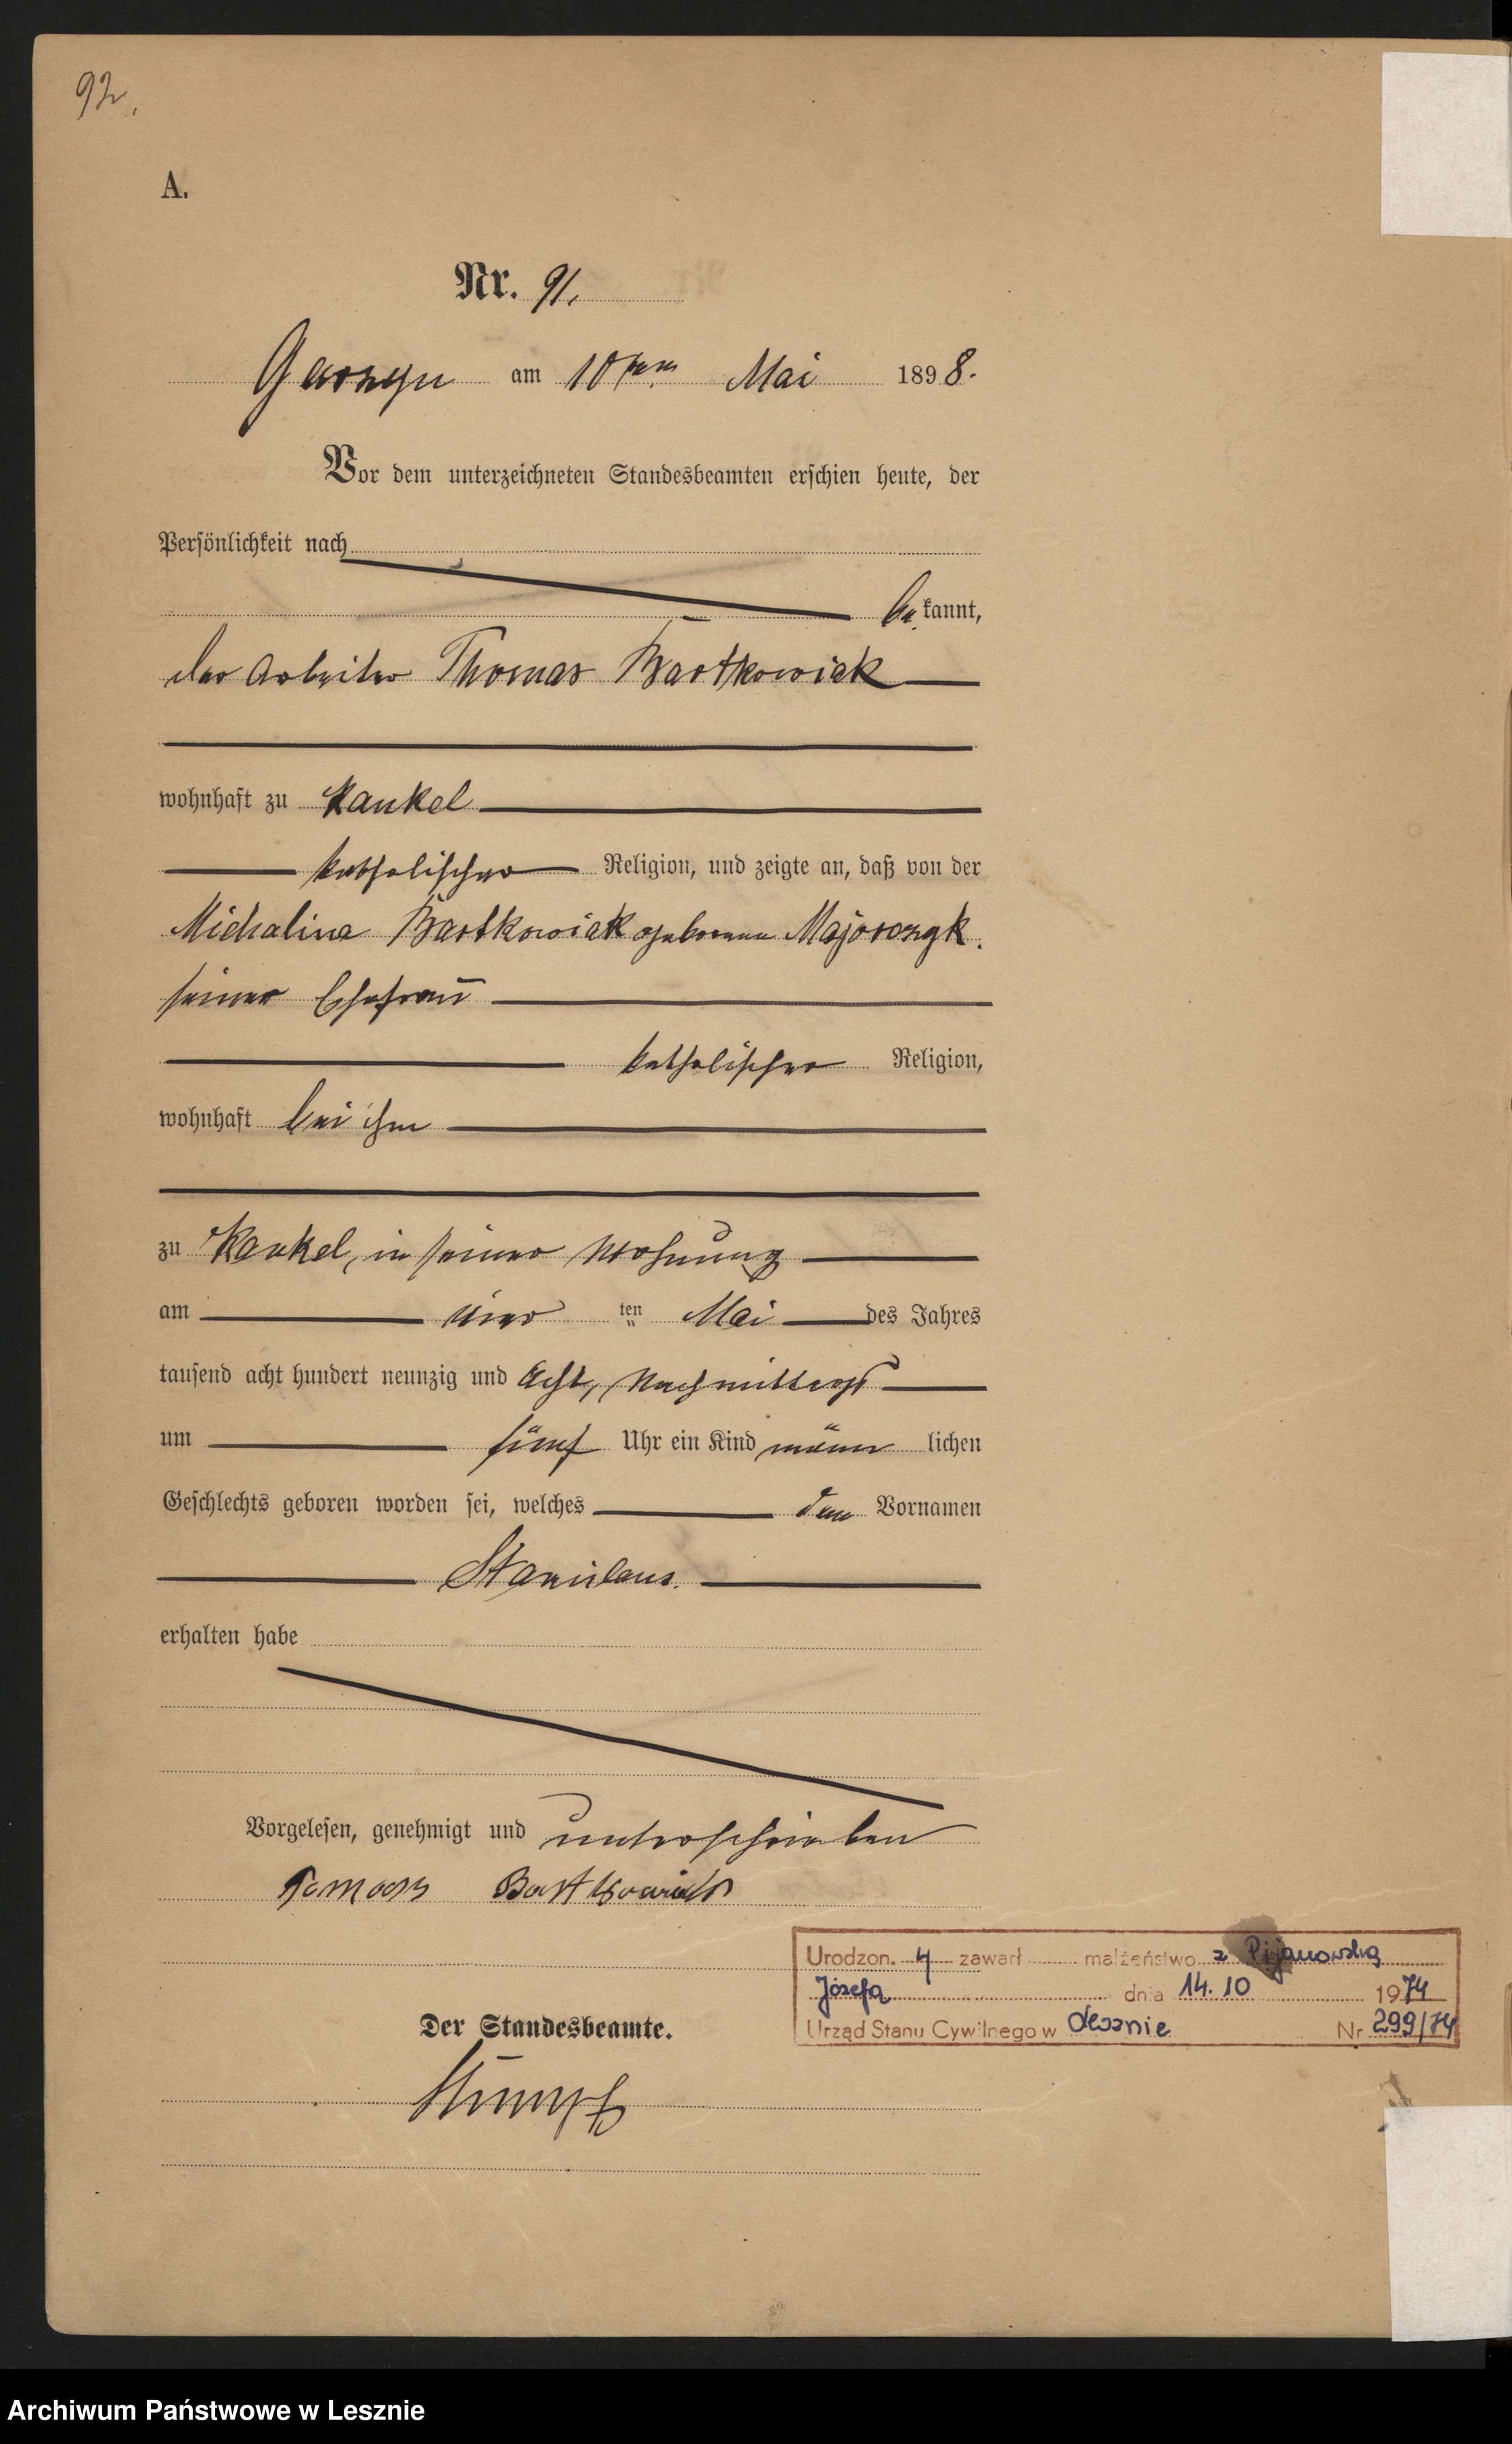 92.
A.
Nr. 91.
Garzyn am 10ten Mai 1898.
Vor dem unterzeichneten Standesbeamten erschien heute, der
Persönlichkeit nach
bekannt,
der Arbeiter Thomas Bartkowiak
wohnhaft zu Kankel
katholischer Religion, und zeigte an, daß von der
Michalina Bartkowiak geborenen Majorczyk.
seiner Ehefrau
katholischer Religion,
wohnhaft bei ihm
zu Kankel, in seiner Wohnung
am vier ten Mai des Jahres
tausend acht hundert neunzig und acht, Nachmittags
um fünf Uhr ein Kind männlichen
Geschlechts geboren worden sei, welches den Vornamen
Stanislaus.
erhalten habe
Vorgelesen, genehmigt und unterschrieben
Tomasz Bartkowiak
Urodzon. y zawarł małżeństwo z Pijanowską
Józefą dnia 14.10 1974
Urząd Stanu Cywilnego w Lesznie Nr 299/74
Der Standesbeamte.
Stumpf
Archiwum Państwowe w Lesznie